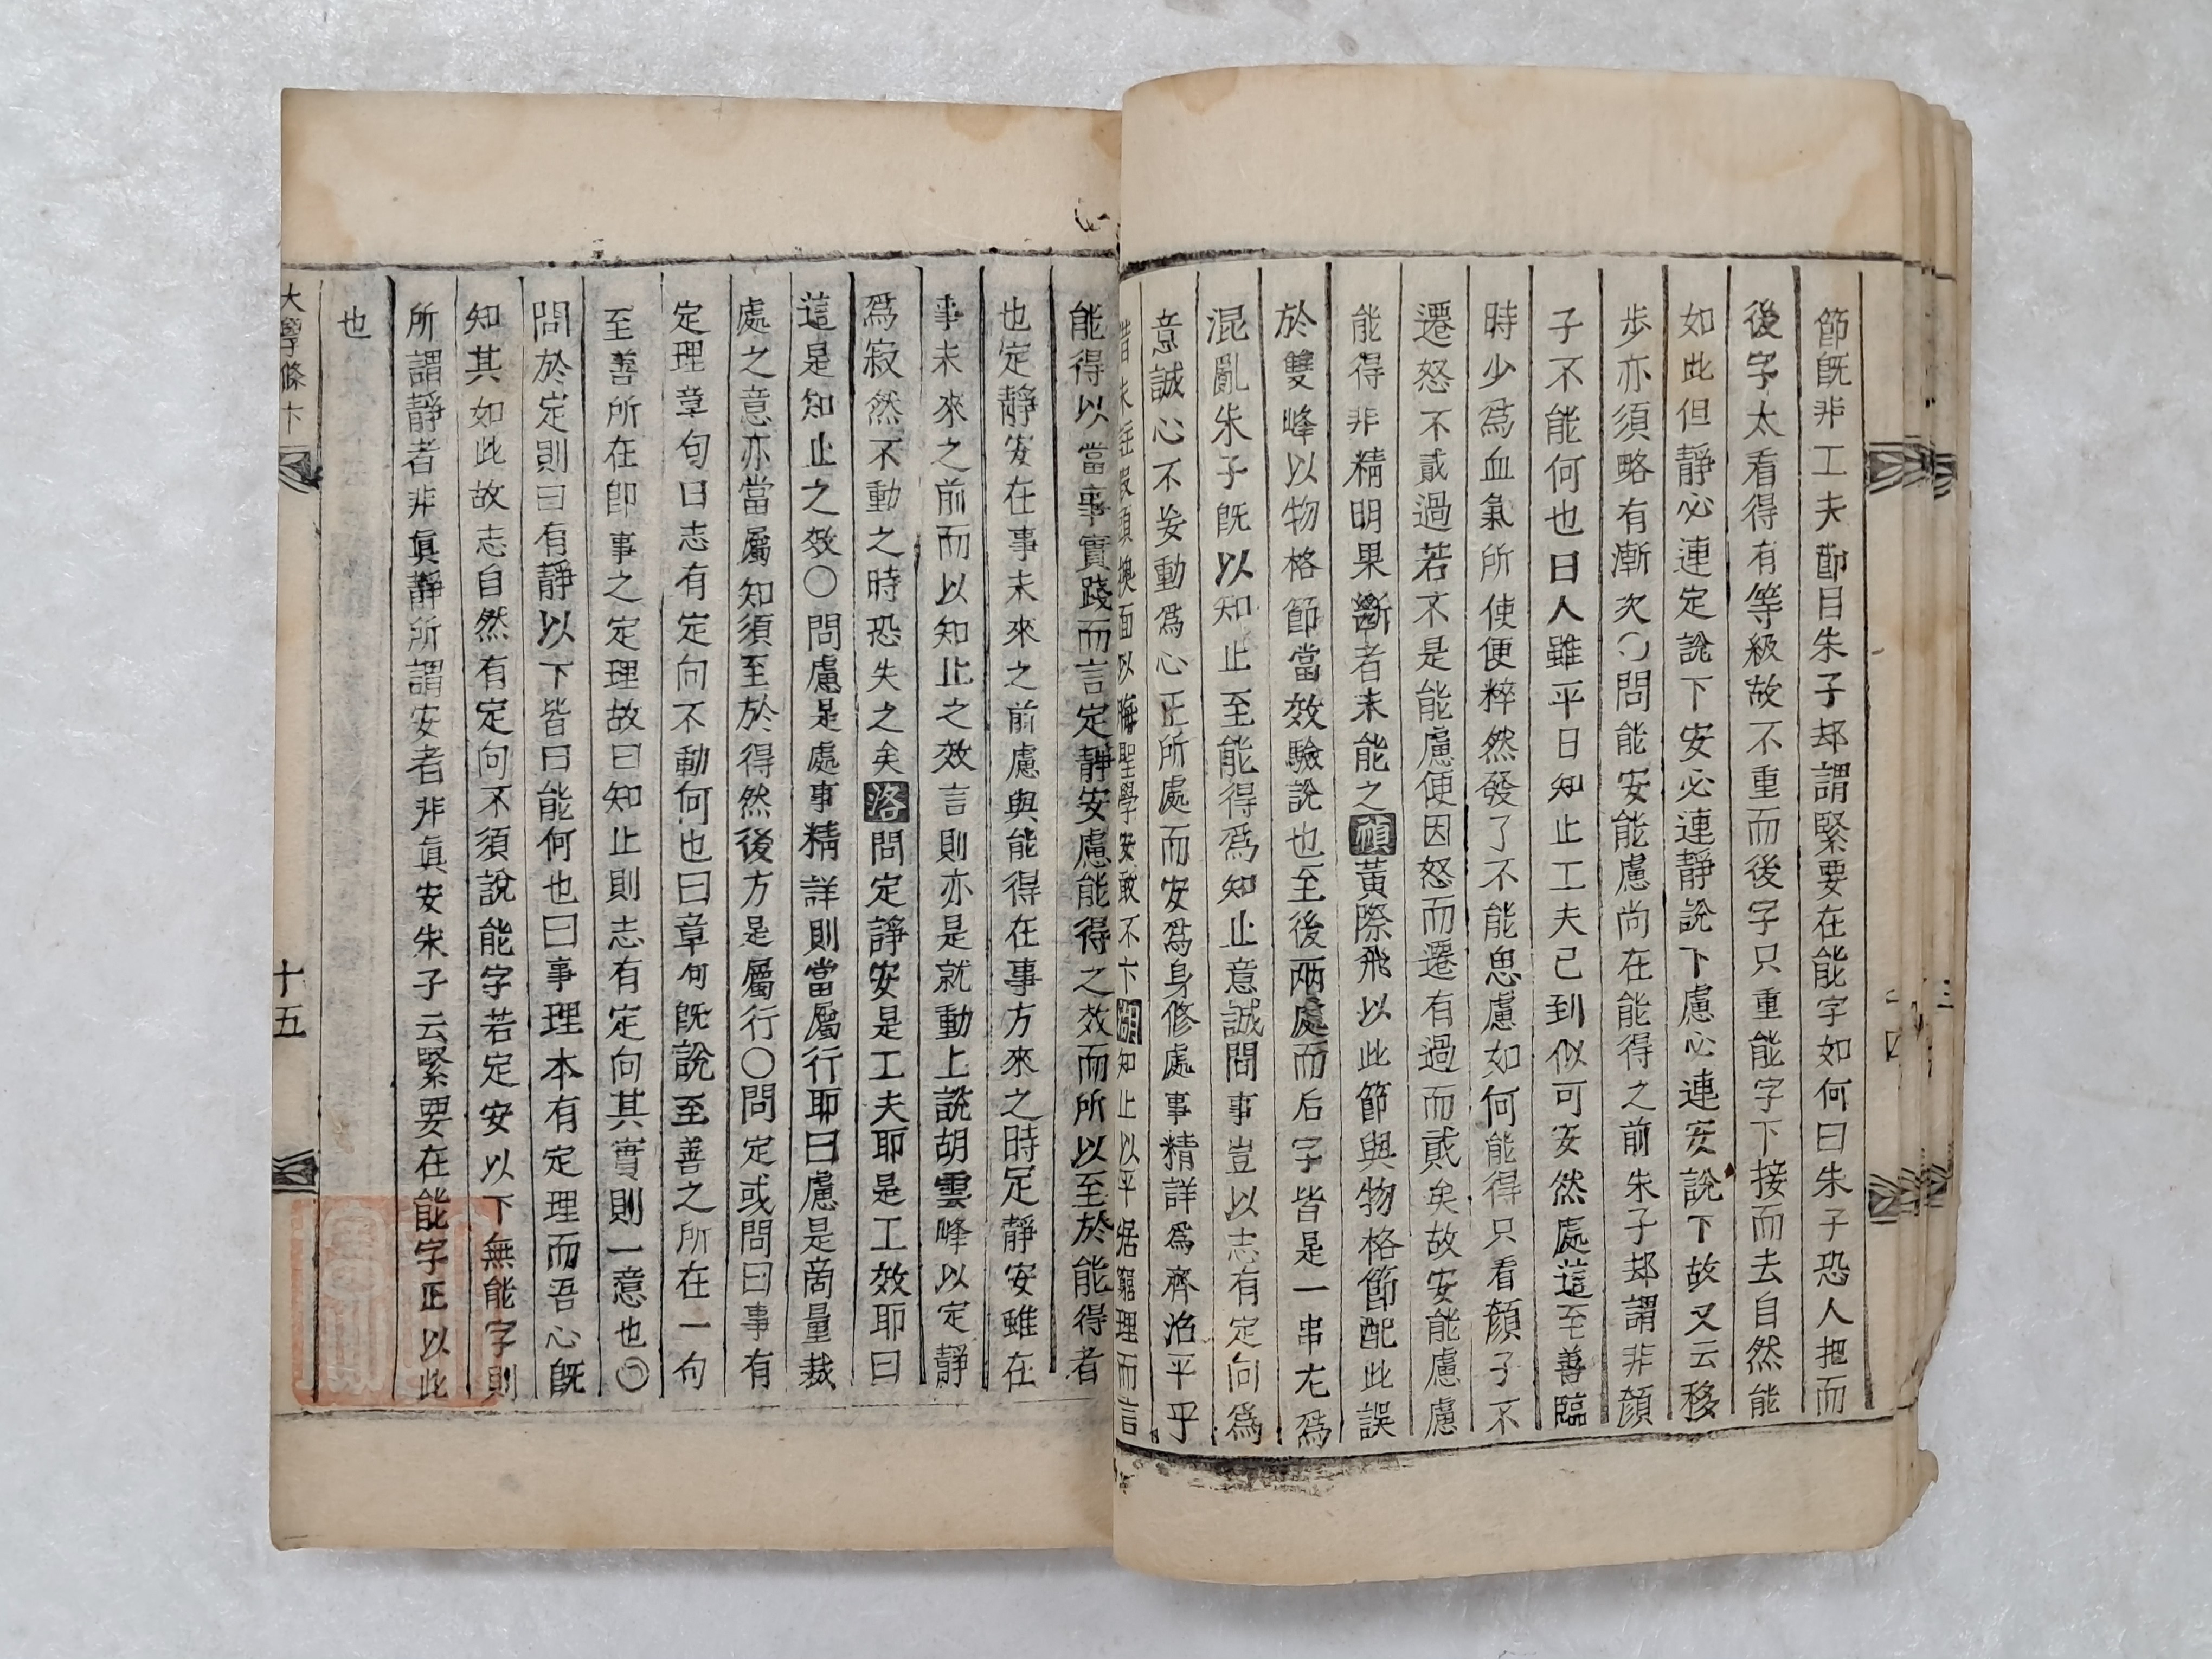 節旣非工夫節目朱子却謂緊要在能字如何曰朱子恐人把而
後字太看得有等級故不重而後字只重能字下接而去自然能
如此但靜必連定說下安必連靜說下慮必連安說下故又云移
步亦須略有漸次○問能安能慮尚在能得之前朱子却謂非顏
子不能何也曰人雖平日知止工夫已到似可安然處這至善臨
時少爲血氣所使便粹然發了不能思慮如何能得只看顏子不
遷怒不貳過若不是能慮便因怒而遷有過而貳矣故安能慮慮
能得非精明果斷者未能之 黃際飛以此節與物格節配此誤
於雙峰以物格節當效驗說也至後兩處而后字皆是一串尤爲
混亂朱子旣以知止至能得爲知止意誠問事豈以志有定向爲
意誠心不妄動爲心正所處而安爲身修處事精詳爲齊治平乎
頭換面以 聖學安敢不卞 知止以平居窮理而言
能得以當事實踐而言定靜安慮能得之效而所以至於能得者
也定靜安在事未來之前慮與能得在事方來之時定靜安雖在
事未來之前而以知止之效言則亦是就動上說胡雲峰以定靜
爲寂然不動之時恐失之矣洛問定靜安是工夫耶是工效耶曰
這是知止之效○問慮是處事精詳則當屬行耶曰慮是商量裁
處之意亦當屬知須至於得然後方是屬行○問定或問曰事有
定理章句曰志有定向不動何也曰章句旣說至善之所在一句
至善所在卽事之定理故曰知止則志有定向其實則一意也○
問於定則曰有靜以下皆曰能何也曰事理本有定理而吾心旣
知其如此故志自然有定向不須說能字若定安以下無能字則
所謂靜者非眞靜所謂安者非眞安朱子云緊要在能字正以此
也
大學條卞
十五